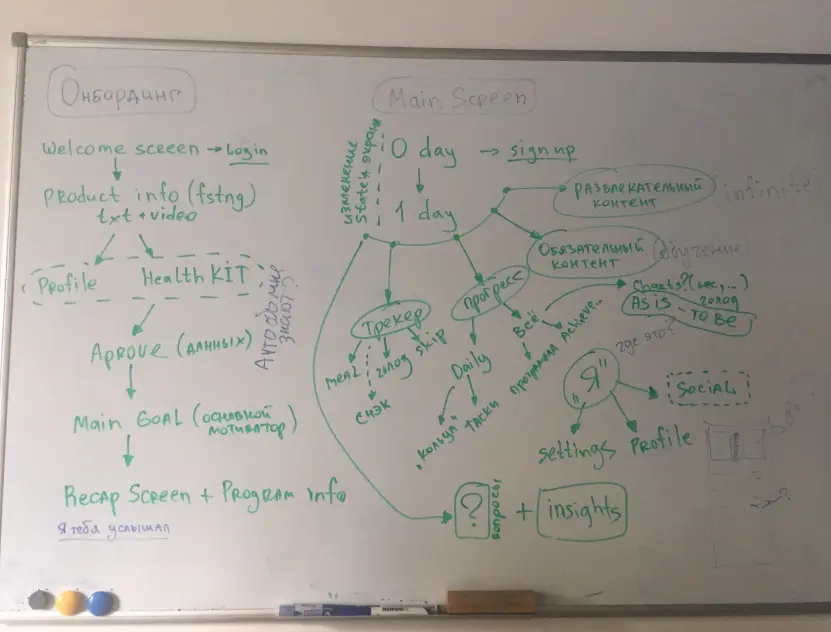 Онбординг
Welcome screen → Login
Product info (fstng)
txt + video
Profile
Health KIT
Aprove (данных)
Main GOAL (основной
мотиватор)
Recap Screen + Program info
Я тебя услышал
Main Screen
изменение
State'a экрана
0 day → sign up
1 day
РАЗВЛЕКАТЕЛЬНЫЙ
КОНТЕНТ
infinite
Обязательный
контент
(обучение)
Трекер
meal
снэк
голод
skip
прогресс
Daily
"Кольца"
таски
Всё
программа
Achieve..
Charts? (вес,...)
голод
AS is - TO BE
где это?
"Я"
settings
Profile
Social
?
вопросы
+ insights